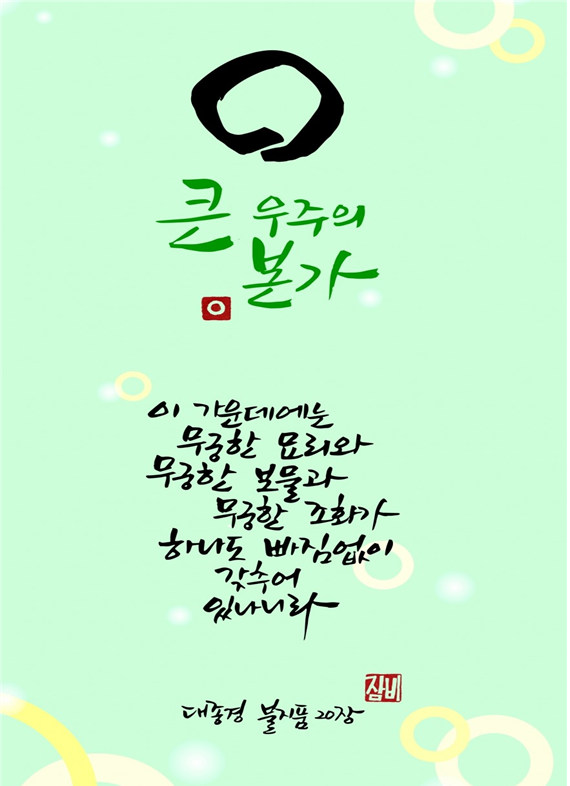 큰 우주의
본가
이 가운데에는
무궁한 묘리와
무궁한 보물과
무궁한 조화가
하나도 빠짐없이
갖추어
있나니라
잠비
대종경 불지품 20장